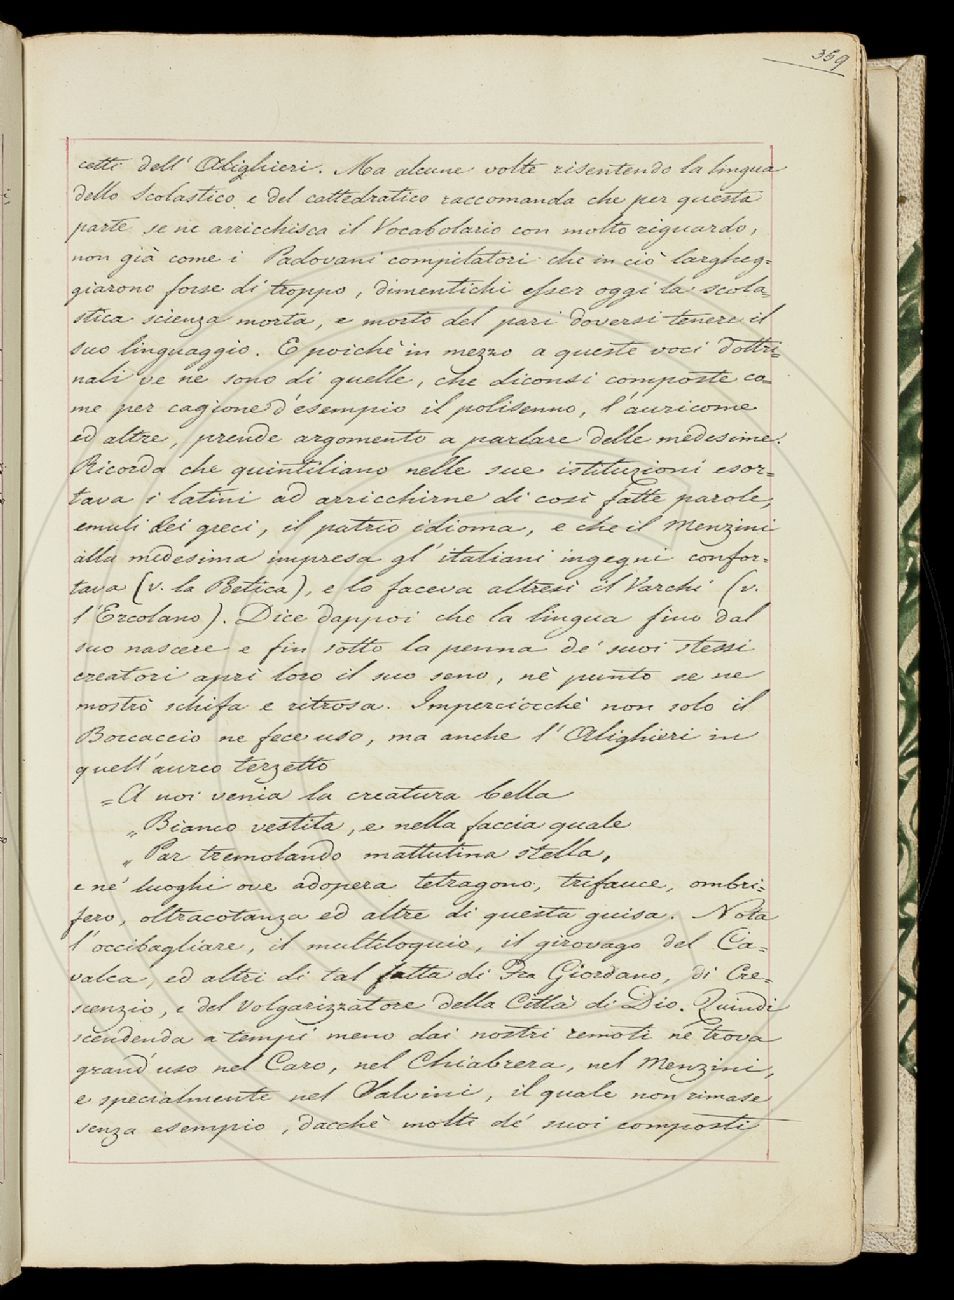 359
cetti dell' Alighieri. Ma alcune volte risentendo la lingua
dello scolastico e del cattedratico raccomanda che per questa
parte se ne arricchisca il Vocabolario con molto riguardo,
non già come i Padovani compilatori che in ciò largheg=
giarono forse di troppo, dimentichi esser oggi la scola=
stica scienza morta, e morto del pari doversi tenere il
suo linguaggio. E poichè in mezzo a queste voci dottri=
nali ve ne sono di quelle, che diconsi composte co=
me per cagione d'esempio il polisenno, l'auricome
ed altre, prende argomento a parlare delle medesime.
Ricorda che quintiliano nelle sue istituzioni esor=
tava i latini ad arricchirne di così fatte parole,
emuli dei greci, il patrio idioma, e che il Menzini
alla medesima impresa gl'italiani ingegni confor=
tava (v. la Poetica), e lo faceva altresì il Varchi (v.
l'Ercolano). Dice dappoi che la lingua fino dal
suo nascere e fin sotto la penna de' suoi stessi
creatori aprì loro il suo seno, nè punto se ne
mostrò schifa e ritrosa. Imperciocchè non solo il
Boccaccio ne fece uso, ma anche l'Alighieri in
quell'aureo terzetto
"A noi venia la creatura bella
"Bianco vestita, e nella faccia quale
"Par tremolando mattutina stella,
e ne' luoghi ove adopera tetragono, trifauce, ombri=
fero, oltracotanza ed altre di questa guisa. Nota
l'occibagliare, il multiloquio, il girovago del Ca=
valca, ed altri di tal fatta di Fra Giordano, di Cre=
scenzio, e del Volgarizzatore della Città di Dio. Quindi
scendenda a tempi meno dai nostri remoti ne trova
grand'uso nel Caro, nel Chiabrera, nel Menzini,
e specialmente nel Salvini, il quale non rimase
senza esempio, dacchè molti de' suoi composti